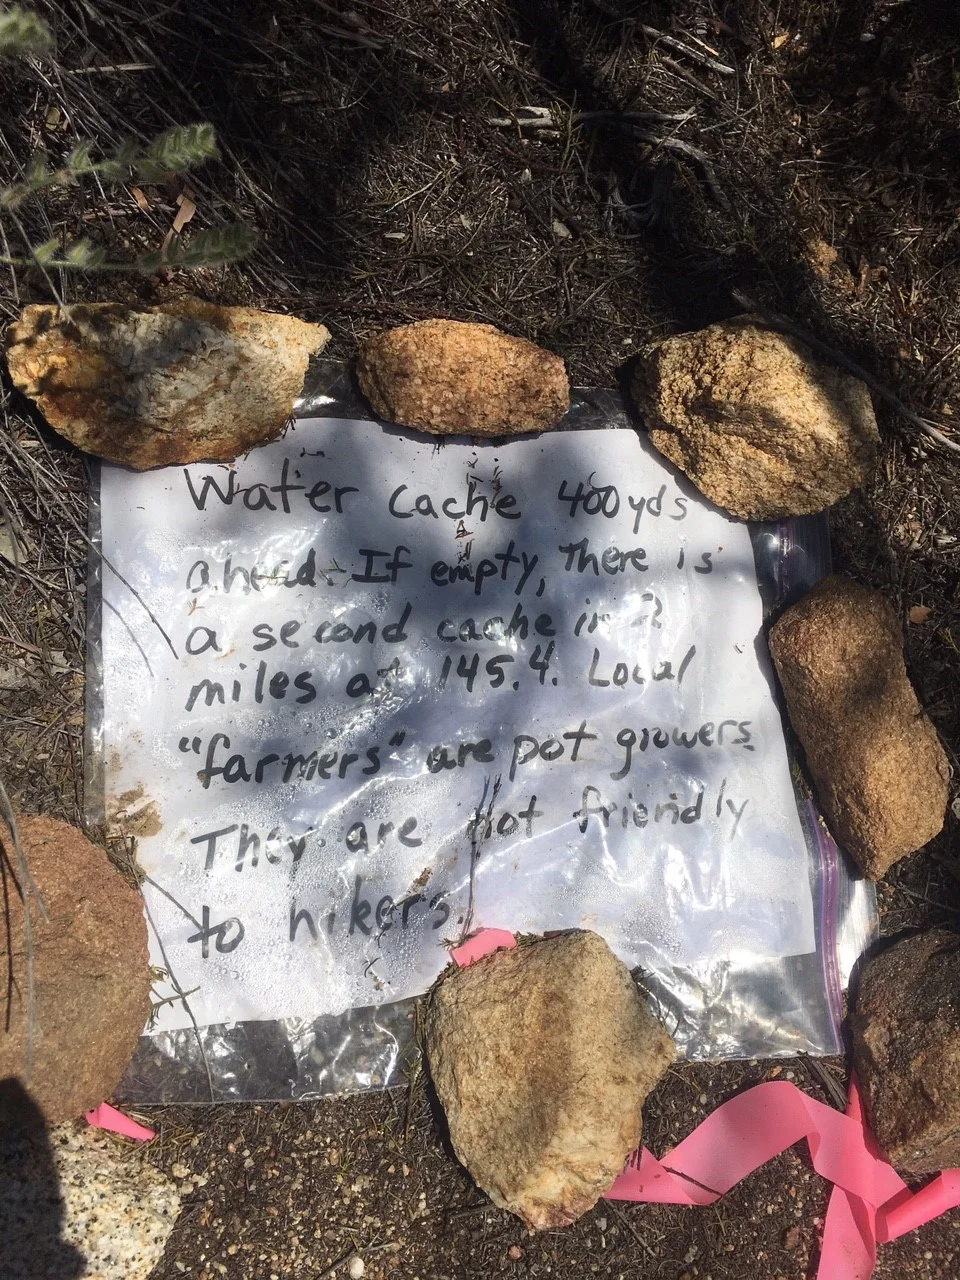 Water cache 400yds
ahead. If empty, There is
a second cache in 2
miles at 145.4. Local
"farmers" are pot growers.
They are not friendly
to hikers.